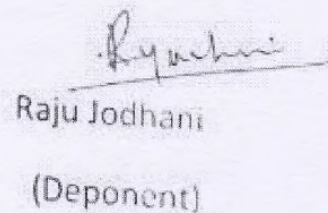 Raju Jodhani
(Deponent)